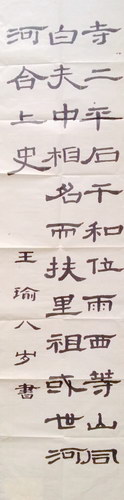 寺二平后干和位雨西等山同
白夫中相名而扶里祖或世河
河合上史
王瑜八岁書